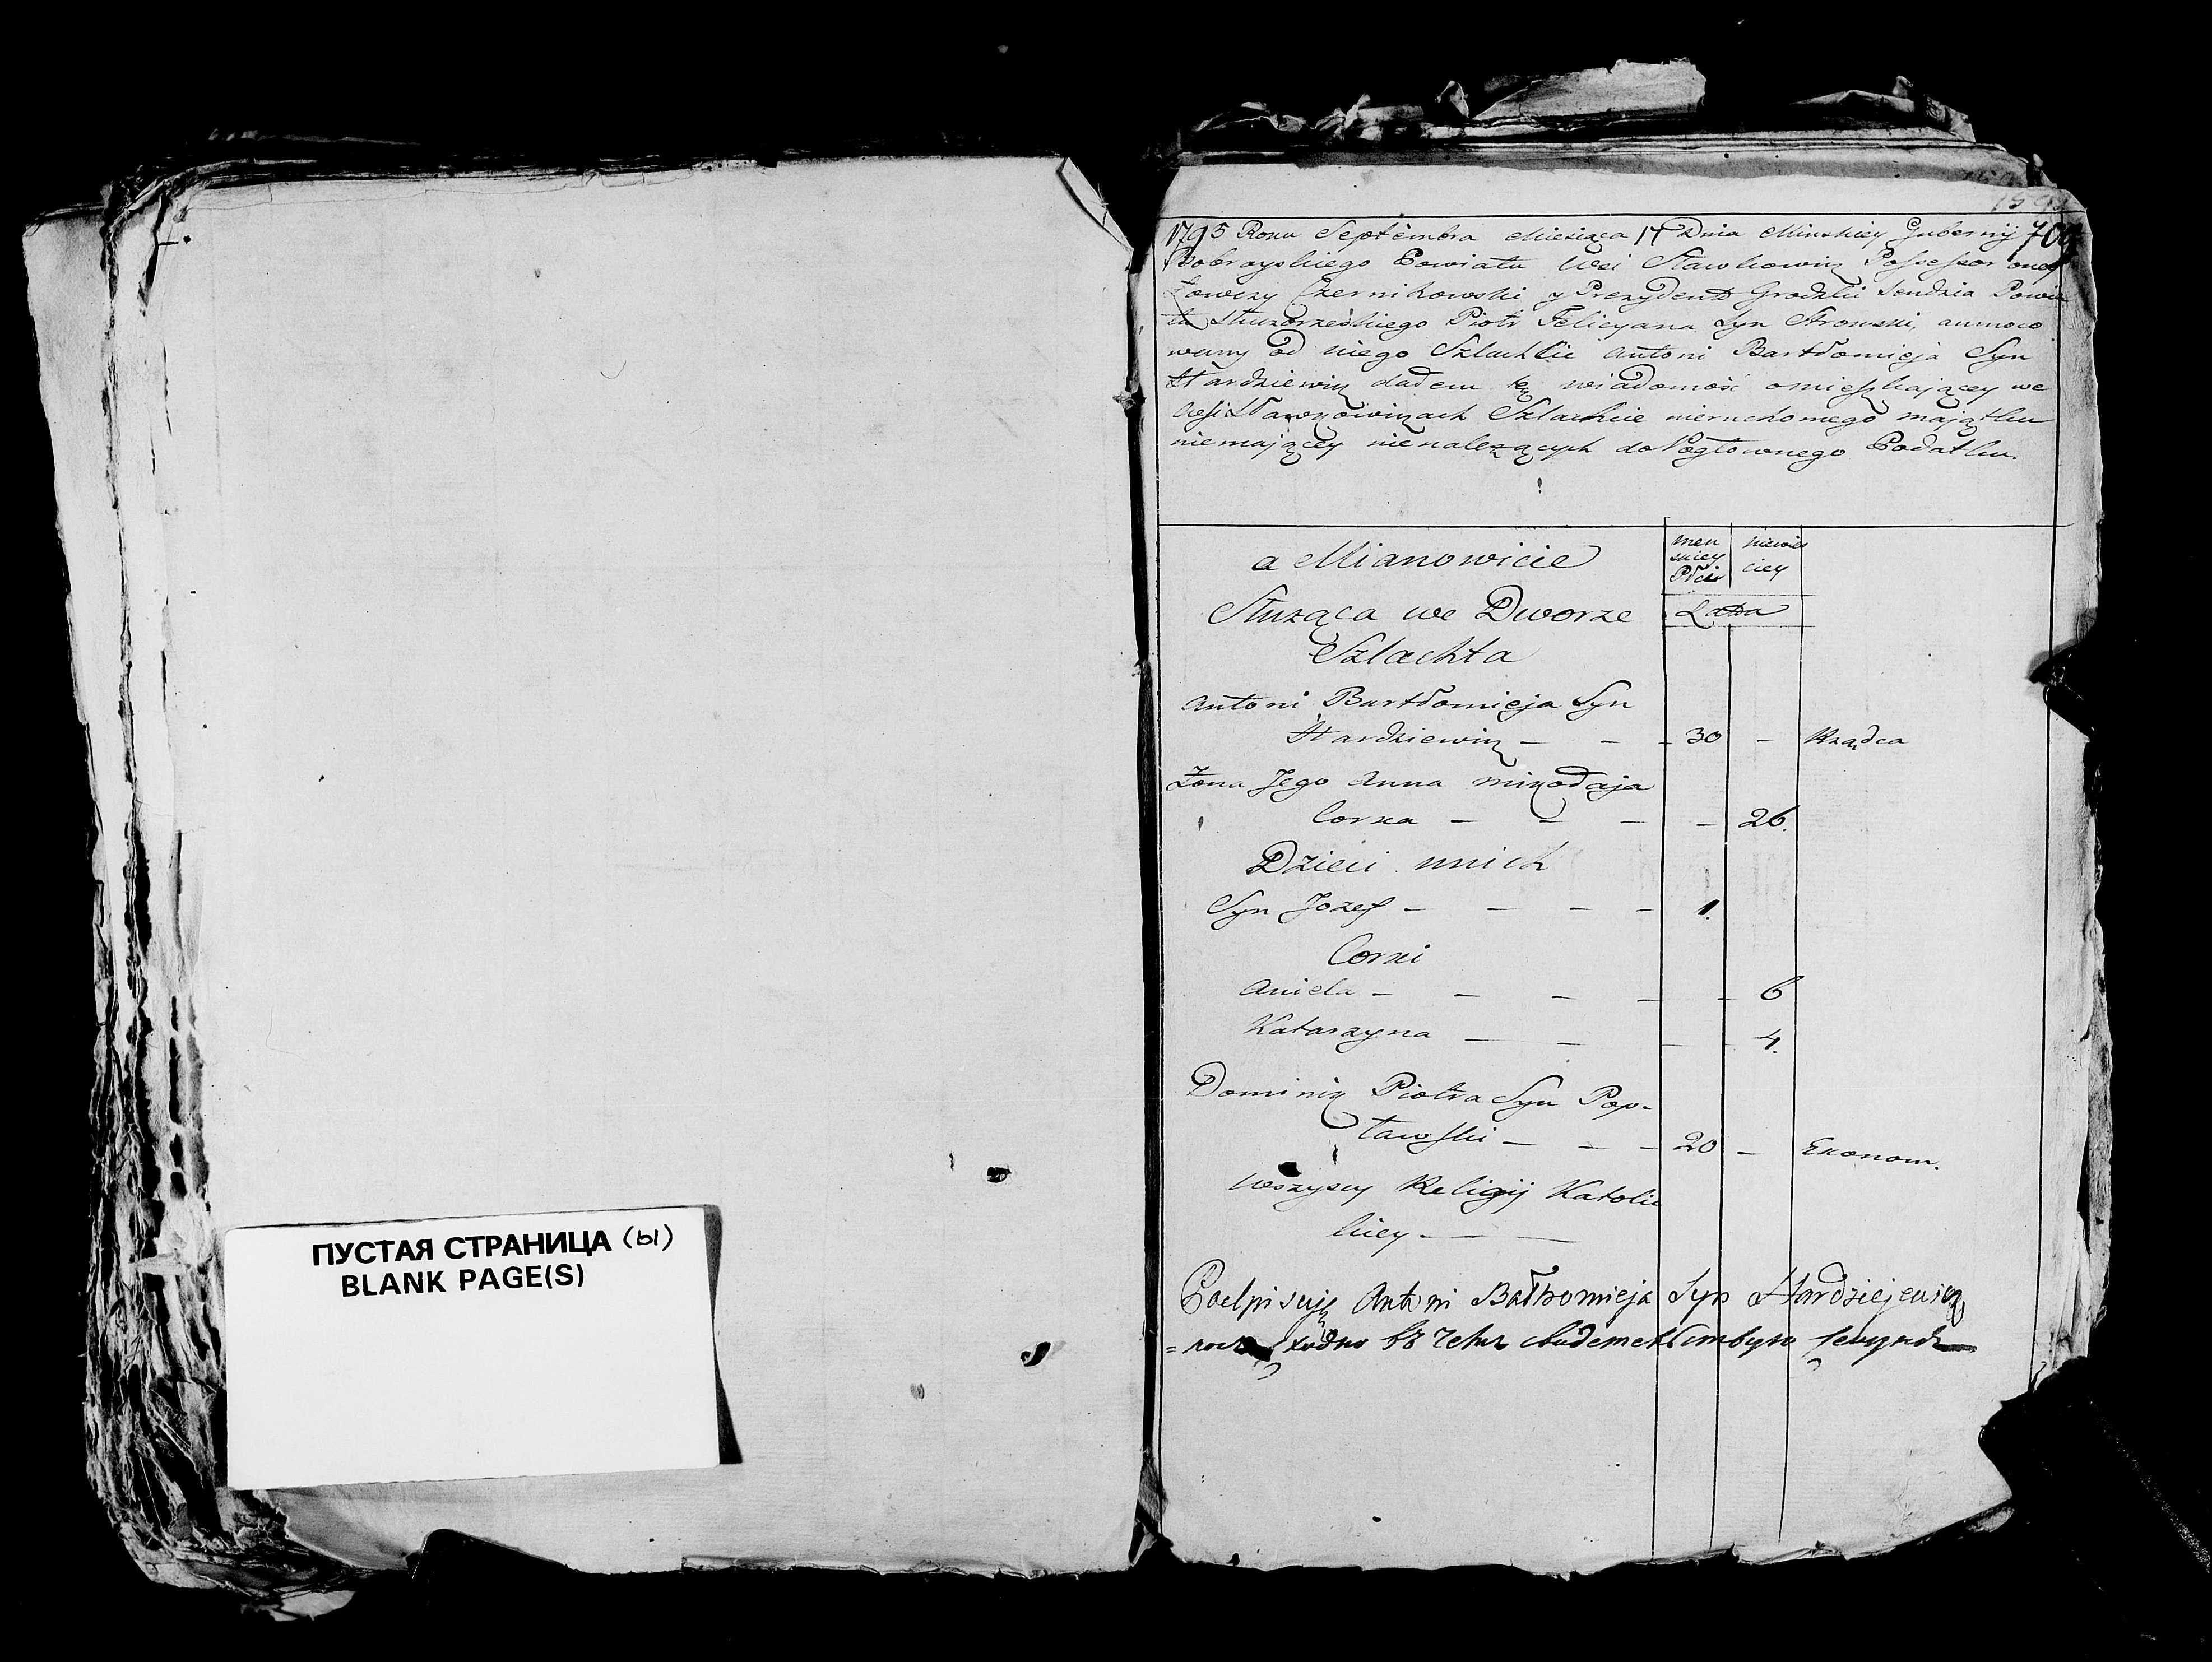 ПУСТАЯ СТРАНИЦА (ы)
BLANK PAGE(S)
1795 Roku Septembra Miesiąca 17 Dnia Minskiey Gubernij
Bobroyskiego Powiatu Wsi Possessor oney
Łowczy Czernihowski y Prezydent Grodzki Sendzia Powia
tu Piotr Felicyana Syn
wany od niego Szlachcic Antoni Bartłomieja Syn
Hardziewicz dałem tę wiadomość omieszkającey we
Wsi Szlachcie nieruchomego majątku
niemającey nienależących do Pogłownego Podatku.
a Mianowicie
men
skiey
Płci
niewies
ciey
Służąca we Dworze
Lata
Szlachta
Antoni Bartłomieja Syn
Hardziewicz — — — 30 — Rządca
Żona Jego Anna Mikołaja
Corka — — — — 26.
Dzieci unich
Syn Jozef — — — — 1.
Corki
Aniela — — — — — 6
Katarzyna — — — — 4.
Dominik Piotra Syn Pop-
ławski — — — 20 — Ekonom.
Wszyscy Religij Katolic
kiey — — —
Podpisuję Antoni Bałtromieja Syn Hardziejewicz